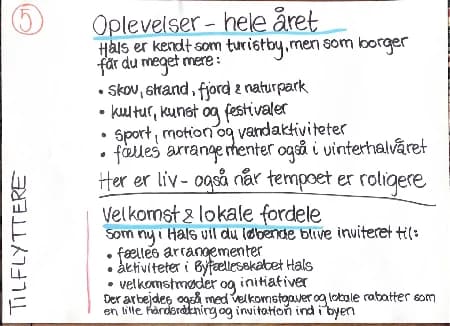 5
Oplevelser - hele året
Hals er kendt som turistby, men som borger
får du meget mere:
• skov, strand, fjord & naturpark
• kultur, kunst og festivaler
• sport, motion og vandaktiviteter
• fælles arrangementer også i vinterhalvåret
Her er liv - også når tempoet er roligere
Velkomst & lokale fordele
Som ny i Hals vil du løbende blive inviteret til:
• fælles arrangementer
• aktiviteter i Byfællesskabet Hals
• velkomstmøder og initiativer
Der arbejdes også med velkomstgaver og lokale rabatter som
en lille håndsrækning og invitation ind i byen
TILFLYTTERE